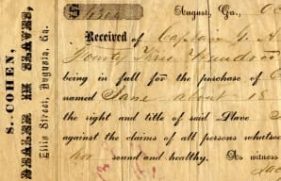 S. COHEN,
DEALER IN SLAVES,
Ellis Street, Augusta, Ga.
$ 1300
August, Ga., Oc
Received of Captain
Hundred
being in full for the purchase of
named Jane about 18
the right and title of said Slave
against the claims of all persons whatsoe
her sound and healthy. As witness